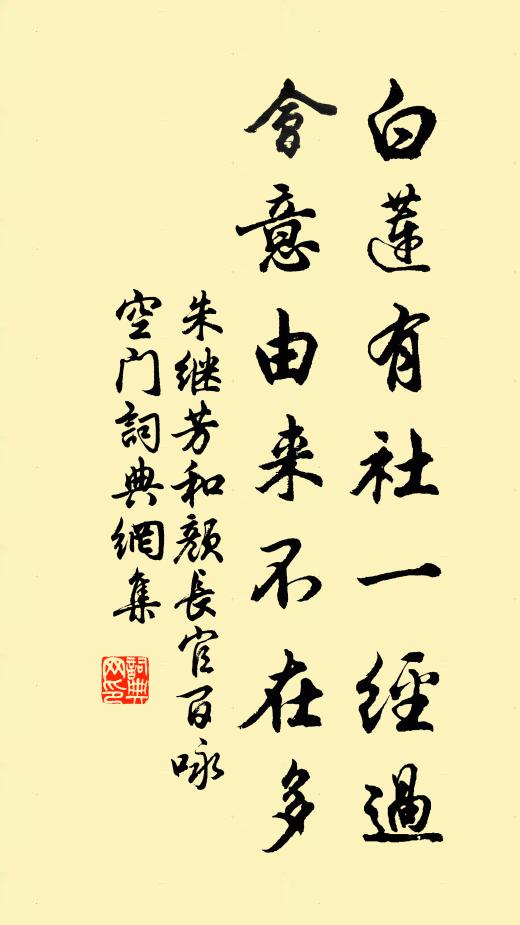 白蓮有社一經過
會意由来不在多
朱继芳和颜長官百咏
空门詞典網集
詞典网印